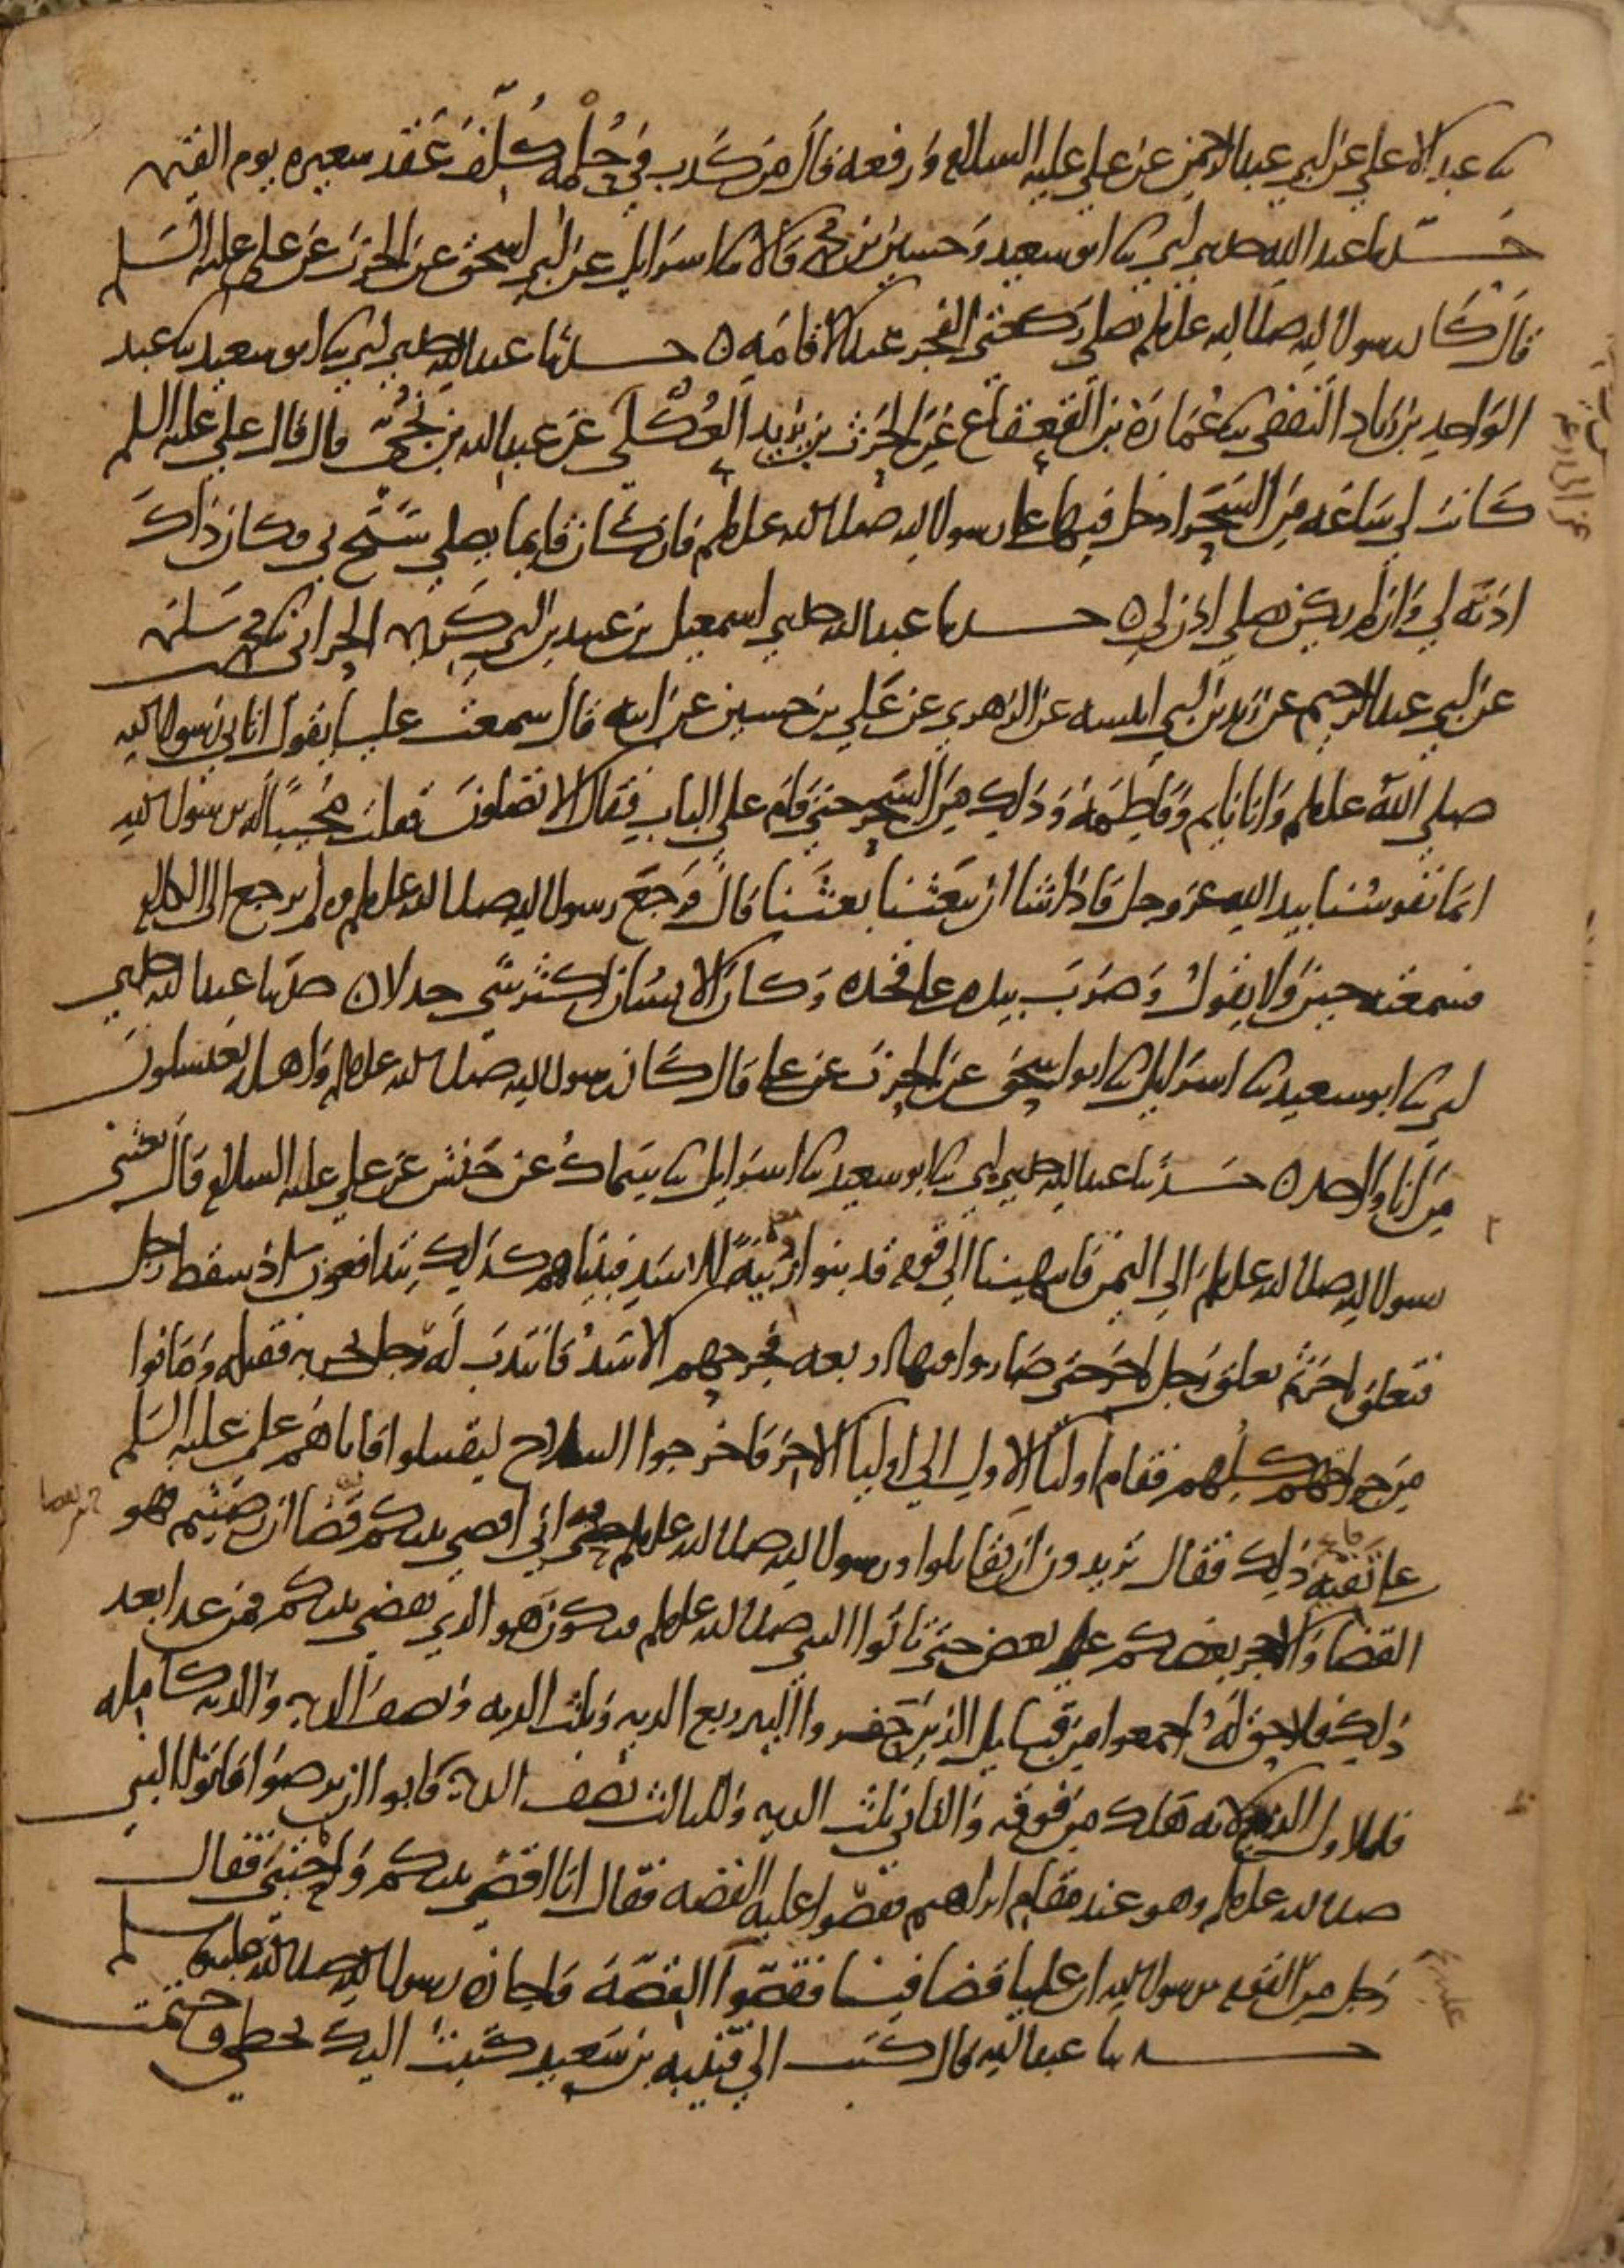 ثنا عبد الاعلي عن ابي عبد الرحمن عن علي عليه السلام ورفعه قال من كذب في حلمه كلف عقد شعيره يوم القيمه
حدثنا عبد الله حدثني ابي ثنا ابو سعيد وحسين بن محمد قالا ثنا اسرايل عن ابي اسحق عن الحرث عن علي عليه السلم
قال كان رسول الله صلى الله عليه وسلم يصلي ركعتي الفجر عند الاقامه ه حدثنا عبد الله حدثني ابي ثنا ابو سعيد ثنا عبد
الواحد بن زياد الثقفي ثنا عمارة بن القعقاع عن الحرث بن يزيد العكلي عن عبد الله بن نجي قال قال علي عليه السلم
كانت لي ساعه من السحر ادخل فيها على رسول الله صلى الله عليه وسلم فان كان قايما يصلي سبح بي فكان ذاك
اذنه لي وان لم يكن يصلي اذن لي ه حدثنا عبد الله حدثني اسمعيل بن عبيد بن ابي كريمه الحراني ثنا محمد بن سلمه
عن ابي عبد الرحيم عن زيد بن ابي انيسه عن الزهري عن علي بن حسين عن ابيه قال سمعت عليا يقول اتاني رسول الله
صلى الله عليه وسلم وانا نايم وفاطمه وذلك من السحر حتى قام على الباب فقال الا تصلون فقلت مجيبا له يرسول الله
انما نفوسنا بيد الله عز وجل فاذا شا ان يبعثنا بعثنا قال فرجع رسول الله صلى الله عليه وسلم ولم يرجع الى الكلام
فسمعته حين ولا يقول وضرب بيده على فخذه وكان الانسان اكثر شي جدلا ه حدثنا عبد الله حدثني
ابي ثنا ابو سعيد ثنا اسرايل ثنا ابو اسحق عن الحرث عن علي قال كان رسول الله صلى الله عليه وسلم واهله يغتسلون
من انا واحد ه حدثنا عبد الله حدثني ابي ثنا ابو سعيد ثنا اسرايل ثنا سماك عن حنش عن علي عليه السلام قال بعثني
رسول الله صلى الله عليه وسلم الى اليمن فانتهينا الى قوم قد بنوا زبية للاسد فبينا هم كذلك يتدافعون اذ سقط رجل
فتعلق باخر ثم تعلق رجل باخر حتى صاروا فيها اربعه فجرحهم الاسد فانتدب له رجل بحربه فقتله وماتوا
من جراحتهم كلهم فقام اوليا الاول الى اوليا الاخر فاخرجوا السلاح ليقتتلوا فاتاهم علي عليه السلم
على تفيه ذلك فقال تريدون ان تقاتلوا ورسول الله صلى الله عليه وسلم حي اني اقضي بينكم قضا ان رضيتم فهو
القضا والا حجز بعضكم على بعض حتى تاتوا النبي صلى الله عليه وسلم فيكون هو الذي يقضي بينكم فمن عدا بعد
ذلك فلا حق له اجمعوا من قبايل الذين حفروا البير ربع الديه وثلث الديه ونصف الديه والديه كامله
فللاول الربع لانه هلك من فوقه والثاني ثلث الديه والثالث نصف الديه فابوا ان يرضوا فاتوا النبي
صلى الله عليه وسلم وهو عند مقام ابراهيم فقصوا عليه القصه فقال انا اقضي بينكم واحتبى فقال
رجل من القوم يرسول الله ان عليا قضا فينا فقصوا القصة فاجازه رسول الله صلى الله عليه وسلم
حدثنا عبد الله قال كتب الي قتيبه بن سعيد كتبت اليك بخطي وختمت